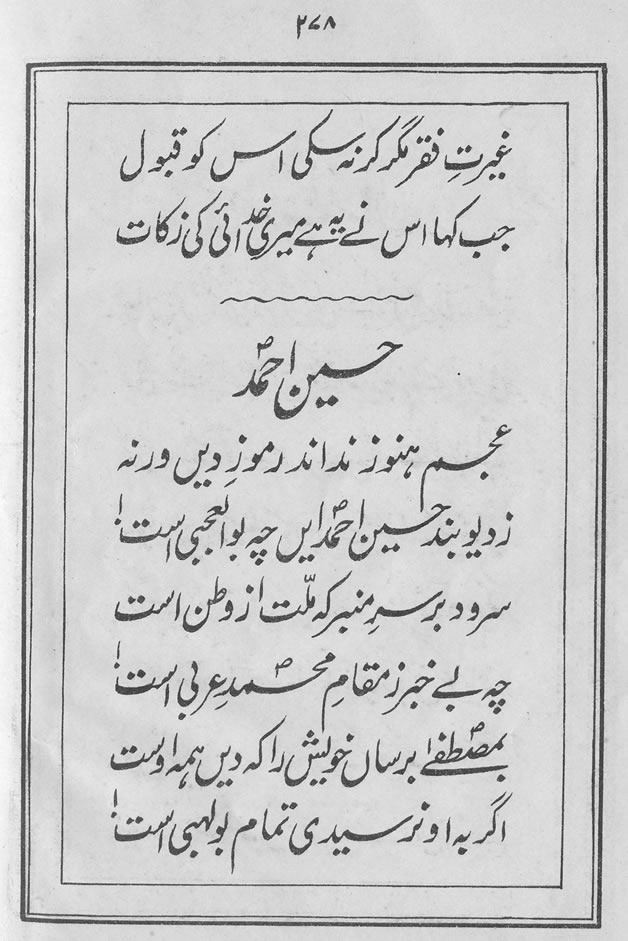 ۲۷۸
غیرتِ فقر مگر کر نہ سکی اس کو قبول
جب کہا اس نے یہ ہے میری خدائی کی زکات
حسین احمدؐ
عجم ہنوز نداند رموزِ دیں ورنہ
ز دیوبند حسین احمدؐ ایں چہ بوالعجبی است!
سرود بر سرِ منبر کہ ملّت از وطن است
چہ بے خبر ز مقامِ محمدؐ عربی است!
بمصطفےٰؐ برساں خویش را کہ دیں ہمہ اوست
اگر بہ او نرسیدی تمام بولہبی است!